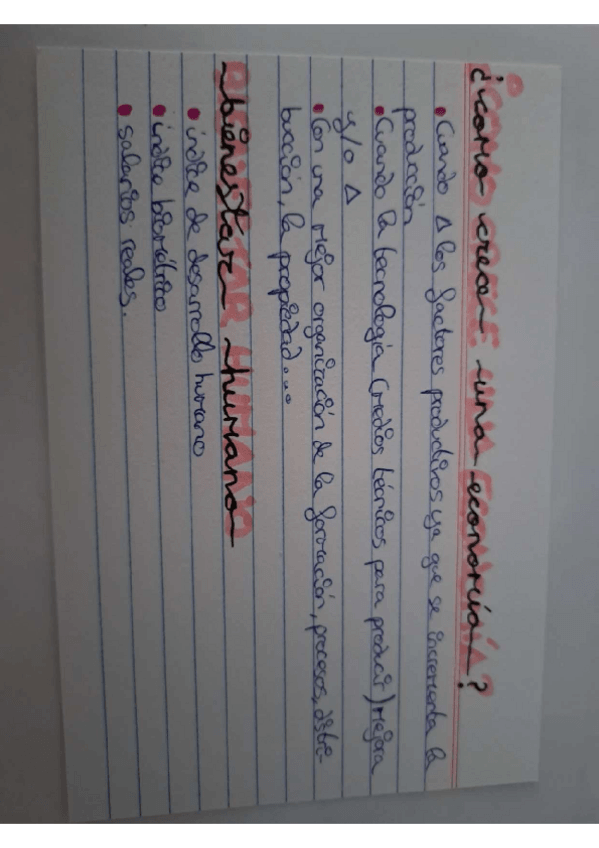 ¿como crece una economía?
• Cuando Δ los factores productivos ya que se incrementa la
producción
• Cuando la tecnología (medios técnicos para producir) mejora
y/o Δ
• Con una mejor organización de la formación, procesos, distri-
bución, la propiedad...
bienestar humano
• índice de desarrollo humano
• índice biométrico
• salarios reales.